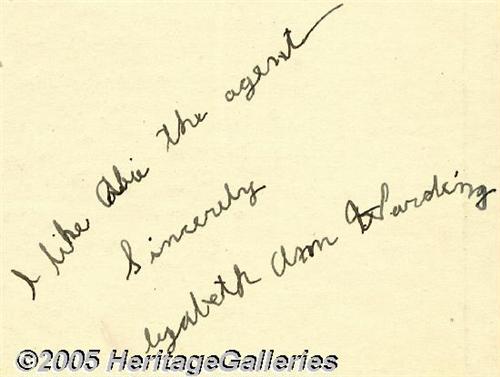 I like Abie the agent
Sincerely
Elizabeth Ann Harding
©2005 HeritageGalleries